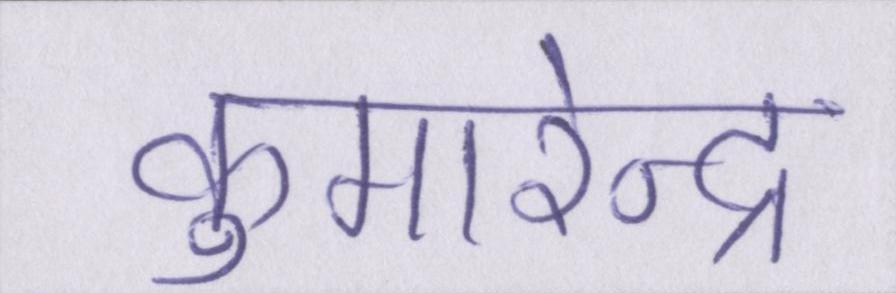 कुमारेन्द्र